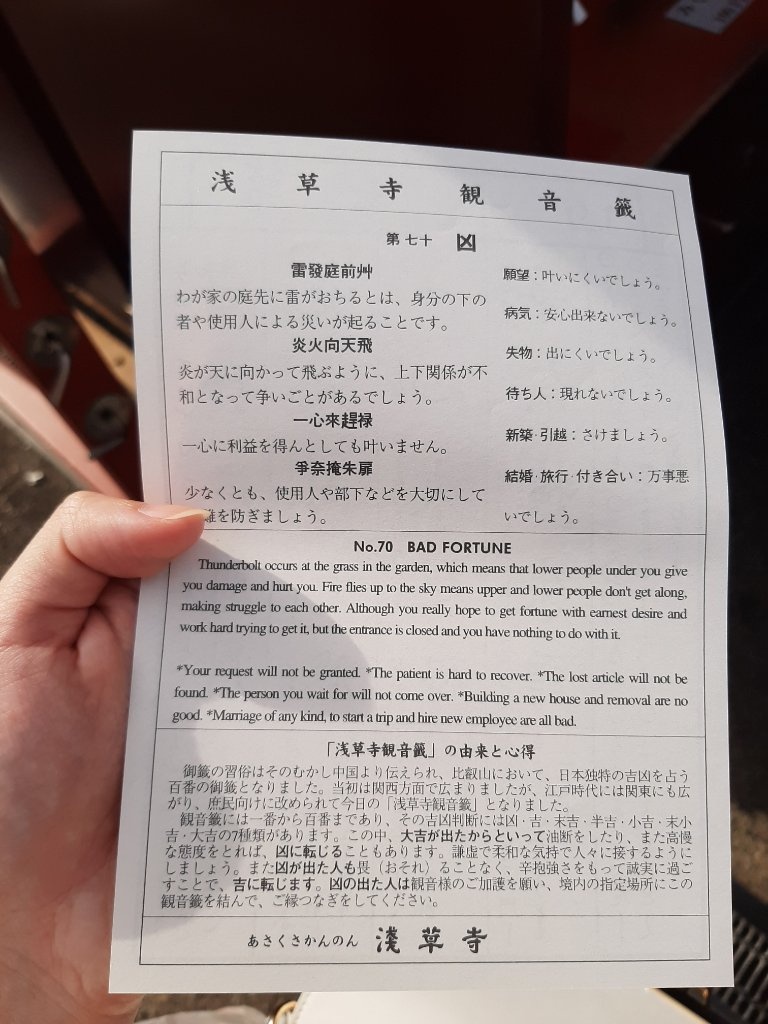 浅草寺観音籤
第七十 凶
雷發庭前艸
わが家の庭先に雷がおちるとは、身分の下の
者や使用人による災いが起ることです。
炎火向天飛
炎が天に向かって飛ぶように、上下関係が不
和となって争いごとがあるでしょう。
一心來趕禄
一心に利益を得んとしても叶いません。
爭奈掩朱扉
少なくとも、使用人や部下などを大切にして
難を防ぎましょう。
願望：叶いにくいでしょう。
病気：安心出来ないでしょう。
失物：出にくいでしょう。
待ち人：現れないでしょう。
新築・引越：さけましょう。
結婚・旅行・付き合い：万事悪
いでしょう。
No.70 BAD FORTUNE
Thunderbolt occurs at the grass in the garden, which means that lower people under you give
you damage and hurt you. Fire flies up to the sky means upper and lower people don't get along,
making struggle to each other. Although you really hope to get fortune with earnest desire and
work hard trying to get it, but the entrance is closed and you have nothing to do with it.
*Your request will not be granted. *The patient is hard to recover. *The lost article will not be
found. *The person you wait for will not come over. *Building a new house and removal are no
good. *Marriage of any kind, to start a trip and hire new employee are all bad.
「浅草寺観音籤」の由来と心得
御籤の習俗はそのむかし中国より伝えられ、比叡山において、日本独特の吉凶を占う
百番の御籤となりました。当初は関西方面で広まりましたが、江戸時代には関東にも広
がり、庶民向けに改められて今日の「浅草寺観音籤」となりました。
観音籤には一番から百番まであり、その吉凶判断には凶・吉・末吉・半吉・小吉・末小
吉・大吉の7種類があります。この中、大吉が出たからといって油断をしたり、また高慢
な態度をとれば、凶に転じることもあります。謙虚で柔和な気持で人々に接するように
しましょう。また凶が出た人も畏（おそれ）ることなく、辛抱強さをもって誠実に過ご
すことで、吉に転じます。凶の出た人は観音様のご加護を願い、境内の指定場所にこの
観音籤を結んで、ご縁つなぎをしてください。
あさくさかんのん 淺草寺